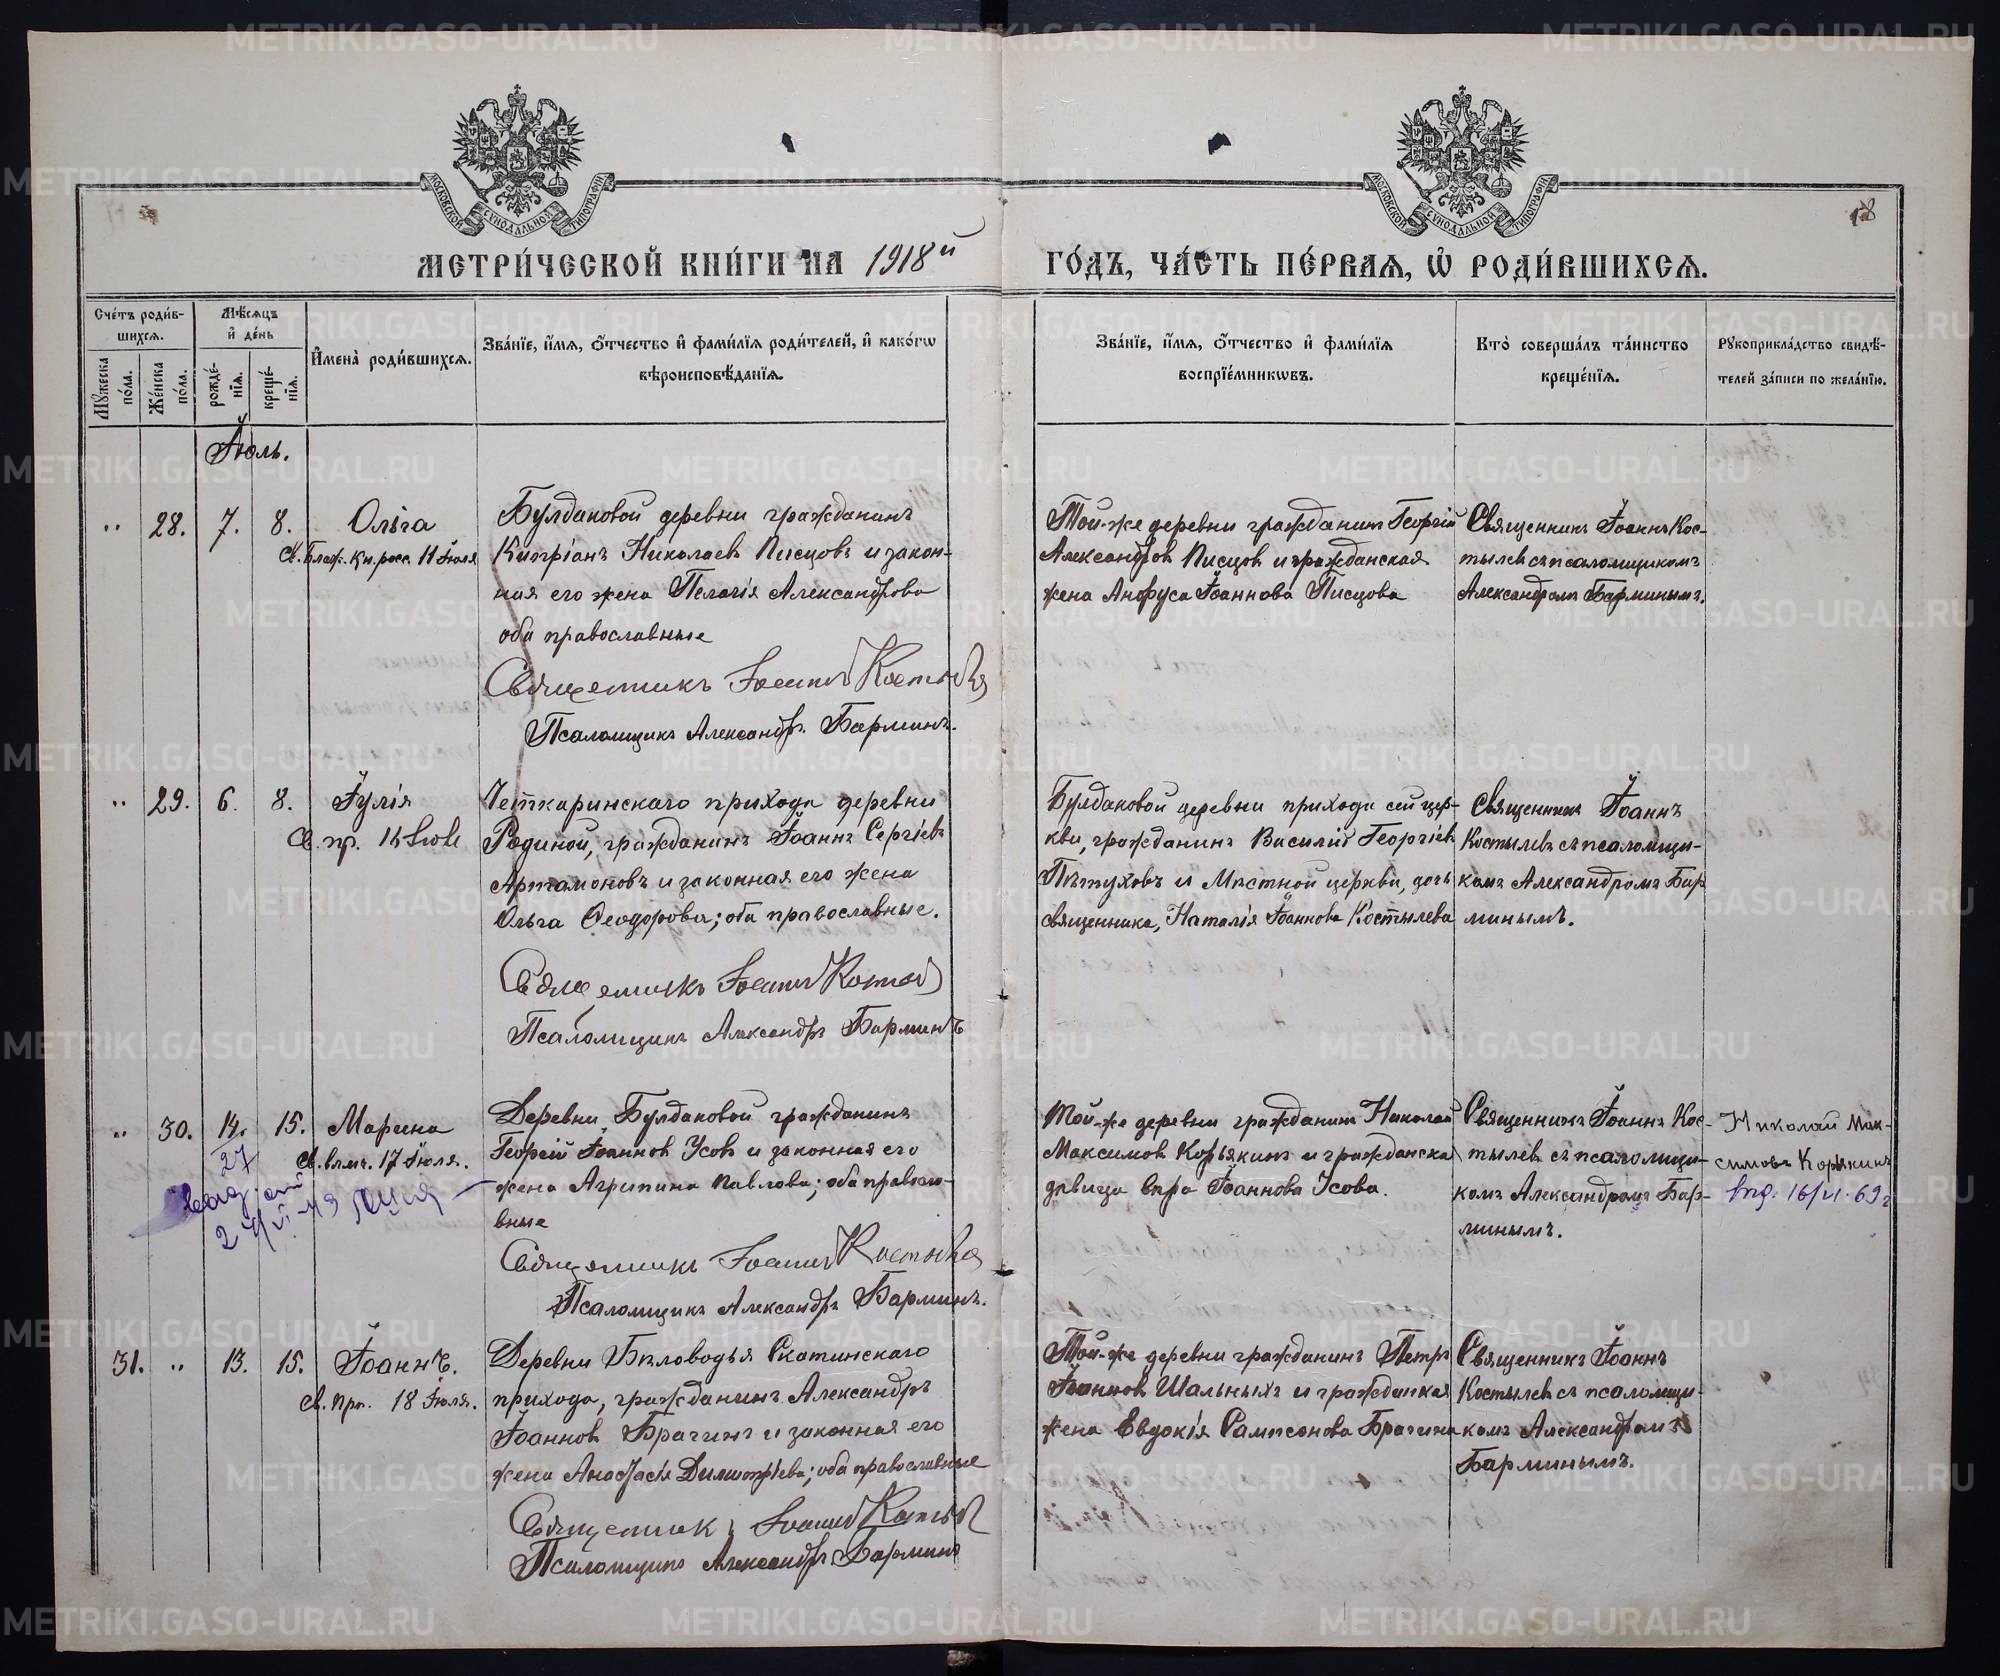 МОСКОВСКОЙ СУНОДАЛЬНОЙ ТИПОГРАФІИ
МОСКОВСКОЙ СУНОДАЛЬНОЙ ТИПОГРАФІИ
18
МЕТРИ́ЧЕСКОЙ КНИ́ГИ НА 1918й
ГО́ДЪ, ЧА́СТЬ ПЕ́РВАЯ, Ѡ҆ РОДИ́ВШИХСЯ.
Сче́тъ роди́в-
шихся.
Мѣ́сяцъ
и҆ де́нь
Мꙋ́жеска по́ла.
Же́нска по́ла.
рожде́-нїя.
креще́-нїя.
И҆мена̀ роди́вшихся.
Зва́нїе, и҆́мя, ѻ҆́тчество и҆ фами́лїя роди́телей, и҆ како́гѡ
вѣроисповѣ́данїя.
Зва́нїе, и҆́мя, ѻ҆́тчество и҆ фами́лїя
воспрїе́мникѡвъ.
Кто̀ соверша́лъ та́инство
креще́нїя.
Рꙋкоприкла́дство свидѣ́-
телей за́писи по жела́нїю.
Іюль.
" 28. 7. 8. Ольга
Св. Благ. Кн. росс. 11 Іюля
Булдаковой деревни гражданинъ
Кипріанъ Николаевъ Писцовъ и закон-
ная его жена Пелагія Александрова
оба православные
Священникъ Іоаннъ Костылев
Псаломщикъ Александръ Барминъ.
Той-же деревни гражданинъ Георгій
Александровъ Писцов и гражданская
жена Анфуса Іоаннова Писцова
Священникъ Іоаннъ Кос-
тылевъ съ псаломщикомъ
Александромъ Барминымъ.
" 29. 6. 8. Іулія
Св. пр. 16 Іюля
Четкаринскаго прихода деревни
Родиной, гражданинъ Іоаннъ Сергіевъ
Артамоновъ и законная его жена
Ольга Ѳеодорова; оба православные.
Священникъ Іоаннъ Костылев
Псаломщикъ Александръ Барминъ
Булдаковой деревни прихода сей цер-
кви, гражданинъ Василій Георгіевъ
Пѣтуховъ и Мѣстной церкви, дочь
священника, Наталія Іоаннова Костылева
Священникъ Іоаннъ
Костылевъ съ псаломщи-
комъ Александромъ Бар
минымъ.
" 30. 14. 15. Марина
27
Св. влмч. 17 Іюля.
Деревни Булдаковой гражданинъ
Георгій Іоанновъ Усовъ и законная его
жена Агрипина Павлова; оба правосла-
вные
Священникъ Іоаннъ Костылев
Псаломщикъ Александръ Барминъ.
Той-же деревни гражданинъ Николай
Максимовъ Корякинъ и гражданская
дѣвица Вѣра Іоаннова Усова.
Священникъ Іоаннъ Кос-
тылевъ съ псаломщи-
комъ Александромъ Бар-
минымъ.
Николай Мак-
симовъ Корякинъ
16/VI-69 г
31. " 13. 15. Іоаннъ.
Св. прп. 18 Іюля.
Деревни Бѣловодья Скатинскаго
прихода, гражданинъ Александръ
Іоанновъ Брагинъ и законная его
жена Анастасія Димитріева; оба православные
Священникъ Іоаннъ Костылев
Псаломщикъ Александръ Барминъ
Той-же деревни гражданинъ Петръ
Іоанновъ Шальныхъ и гражданская
жена Евдокія Сампсонова Брагина
Священникъ Іоаннъ
Костылевъ съ псаломщи-
комъ Александромъ
Барминымъ.